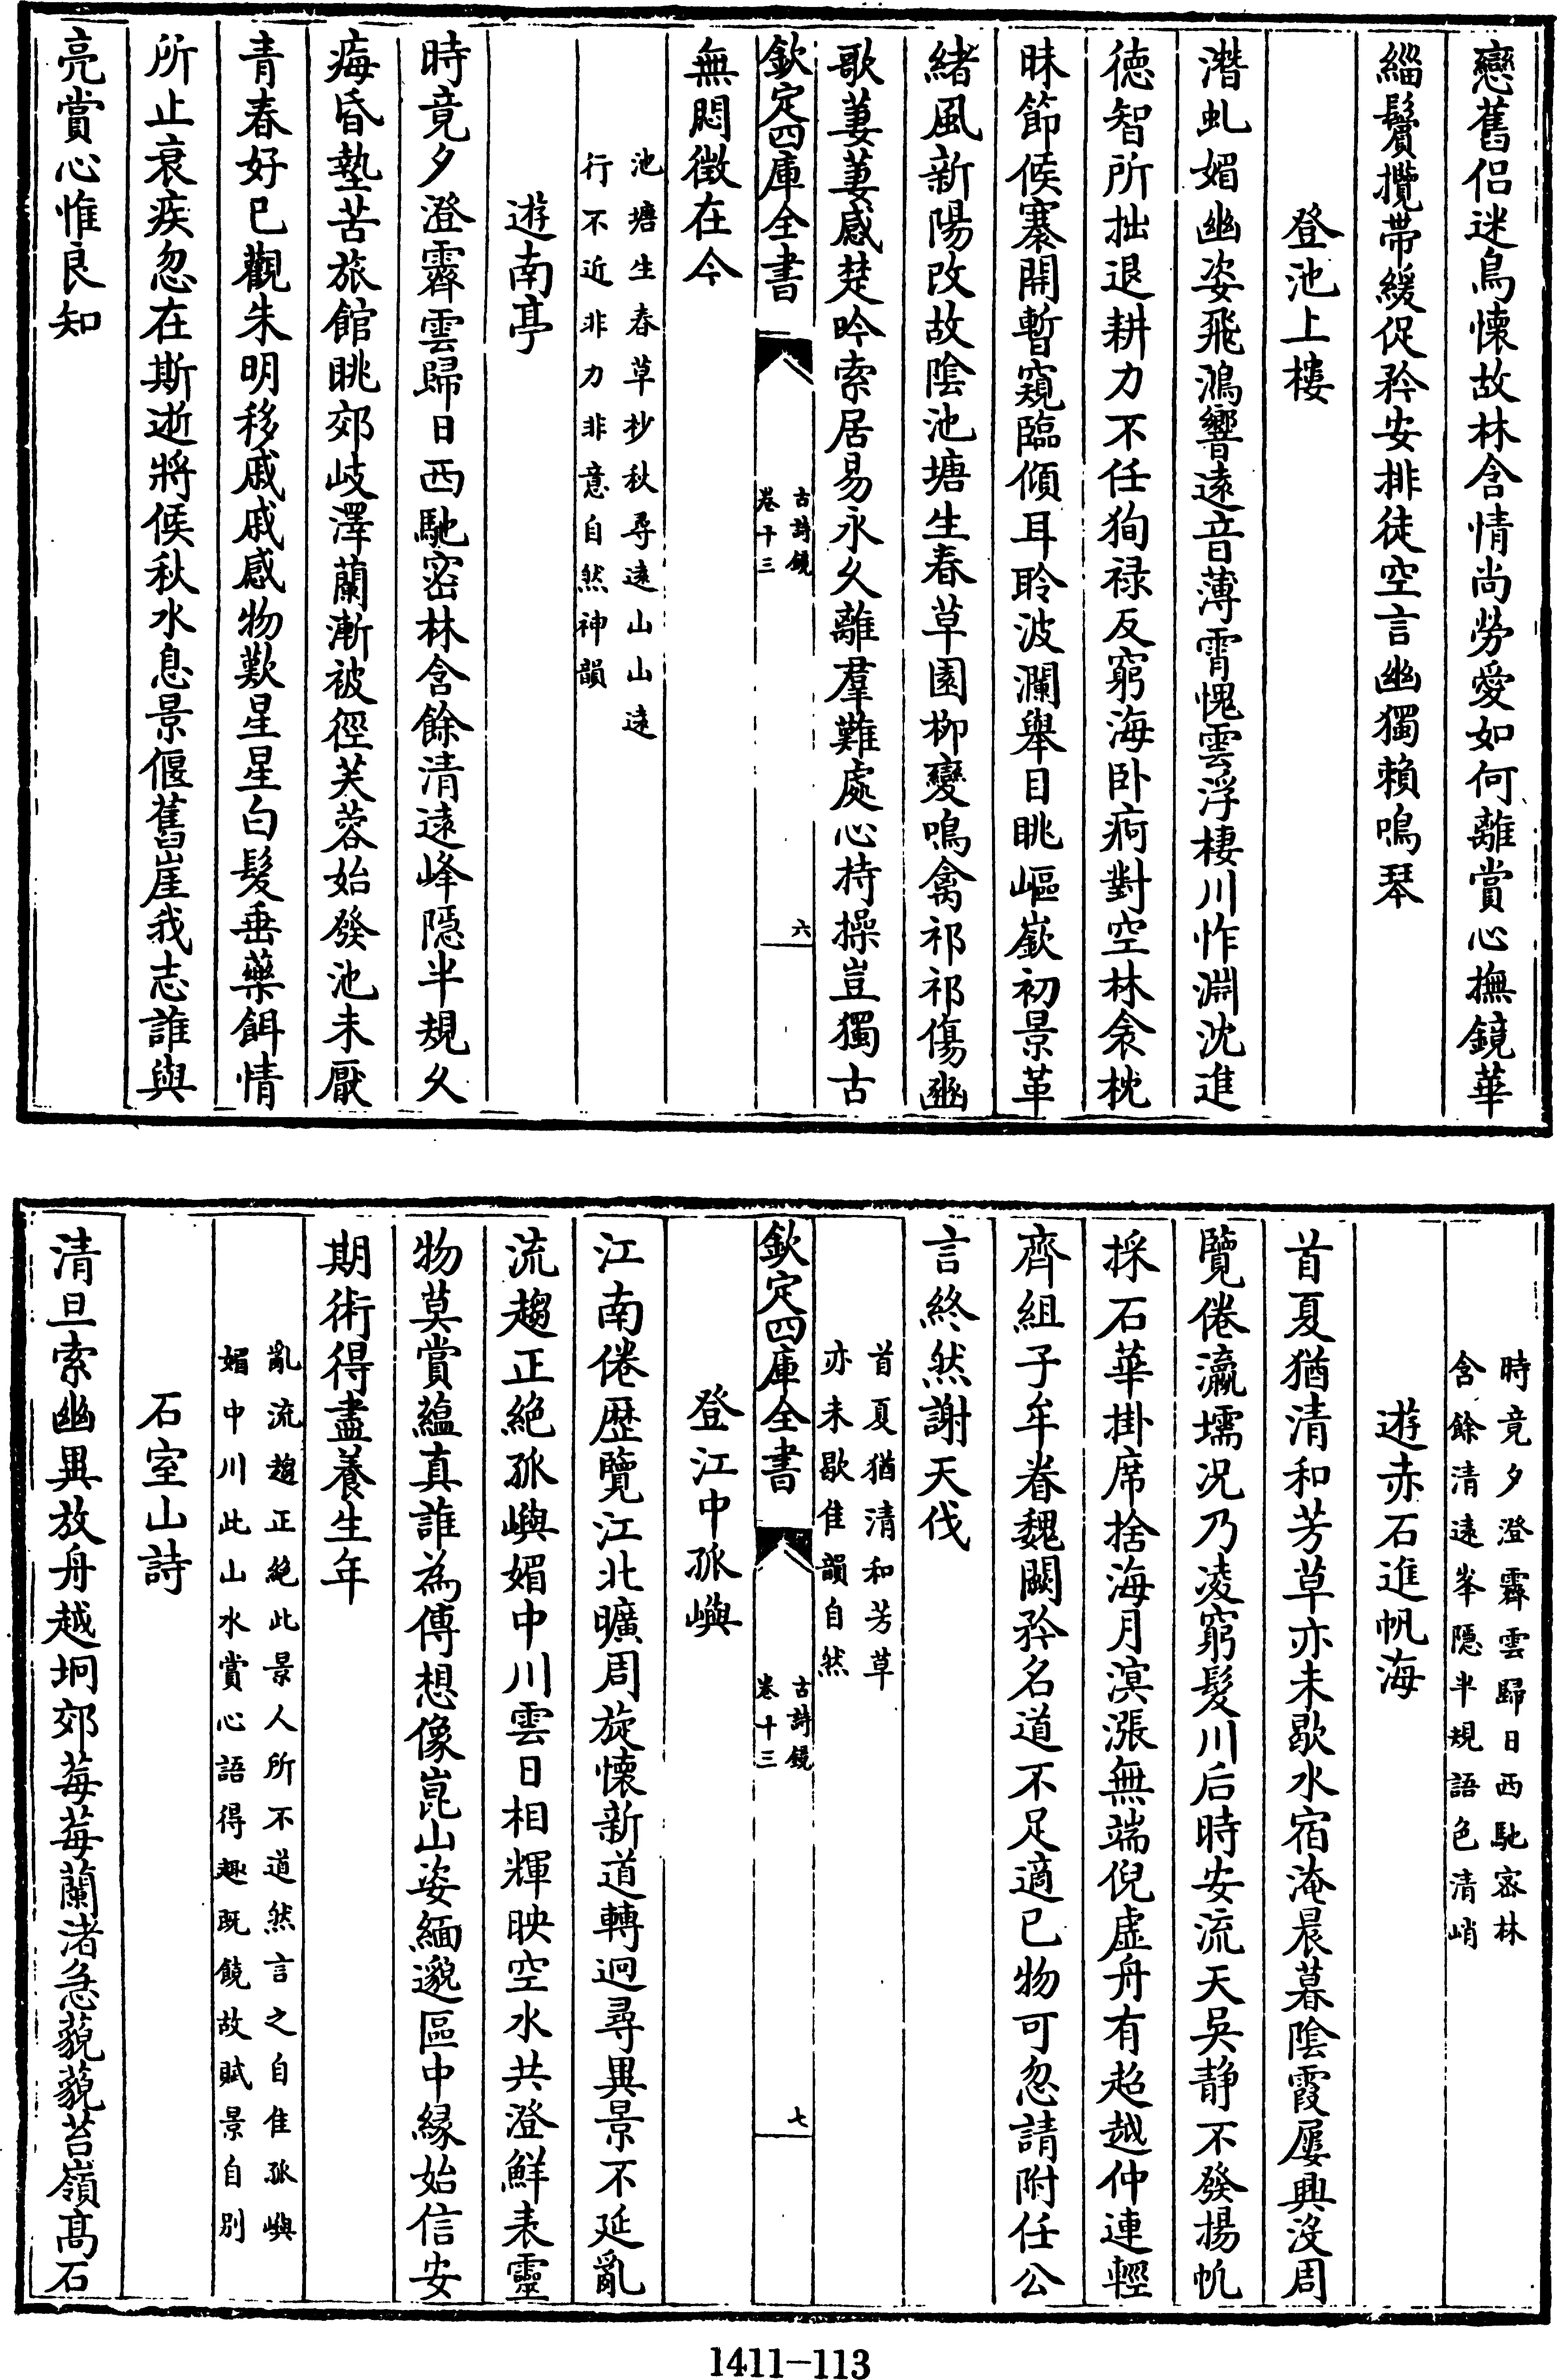 戀舊侣迷鳥懷故林含情尚勞愛如何離賞心撫鏡華
緇鬢攬帶緩促矜安排徒空言幽獨賴鳴琴
登池上樓
潛虬媚幽姿飛鴻響遠音薄霄愧雲浮棲川怍淵沈進
徳智所拙退耕力不任狥禄反窮海卧痾對空林衾枕
昧節候褰開暫窺臨傾耳聆波瀾舉目眺嶇嶔初景革
緒風新陽改故陰池塘生春草園柳變鳴禽祁祁傷豳
歌萋萋感楚吟索居易永久離羣難處心持操豈獨古
欽定四庫全書
古詩鏡
卷十三
六
無悶徵在今
池塘生春草杪秋尋逺山山逺
行不近非力非意自然神韻
遊南亭
時竟夕澄霽雲歸日西馳密林含餘清逺峰隠半規久
痗昏墊苦旅館眺郊岐澤蘭漸被徑芙蓉始發池未厭
青春好已觀朱明移戚戚感物歎星星白髮垂藥餌情
所止衰疾忽在斯逝將候秋水息景偃舊崖我志誰與
亮賞心惟良知
時竟夕澄霽雲歸日西馳宻林
含餘清逺峯隠半規語色清峭
遊赤石進帆海
首夏猶清和芳草亦未歇水宿淹晨暮陰霞屢興沒周
覽倦瀛壖况乃凌窮髮川后時安流天吳静不發揚帆
採石華掛席拾海月溟漲無端倪虚舟有超越仲連輕
齊組子牟眷魏闕矜名道不足適己物可忽請附任公
言終然謝天伐
首夏猶清和芳草
亦未歇隹韻自然
欽定四庫全書
古詩鏡
卷十三
七
登江中孤嶼
江南倦歴覽江北曠周旋懷新道轉迥尋異景不延亂
流趨正絶孤嶼媚中川雲日相輝映空水共澄鮮表靈
物莫賞藴真誰為傳想像崑山姿緬邈區中縁始信安
期術得盡養生年
亂流趨正絶此景人所不道然言之自隹孤嶼
媚中川此山水賞心語得趣既饒故賦景自别
石室山詩
清旦索幽異放舟越坰郊莓莓蘭渚急藐藐苔嶺髙石
1411-113